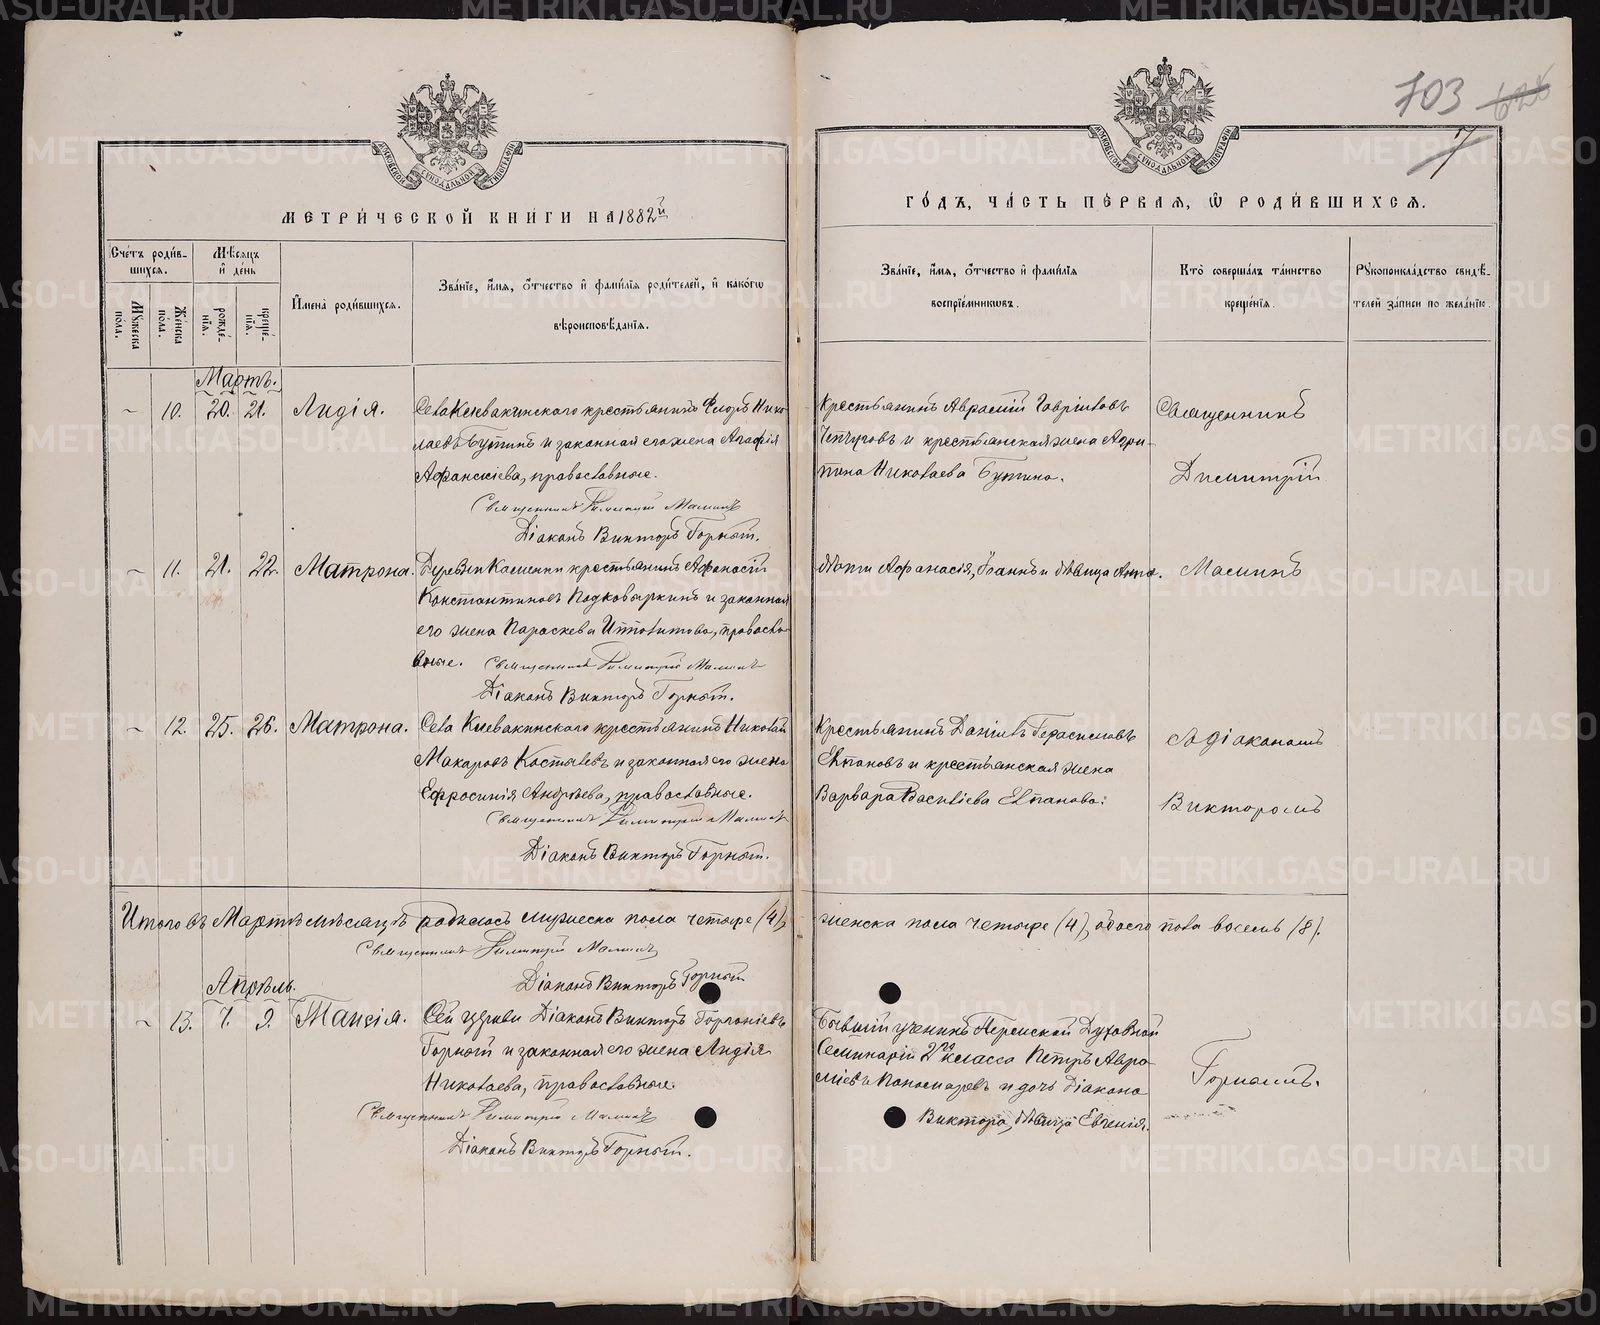 703 628
7
МОСКОВСКОЙ СѴНОДАЛЬНОЙ ТИПОГРАФІИ
МОСКОВСКОЙ СѴНОДАЛЬНОЙ ТИПОГРАФІИ
МЕТРИ́ЧЕСКОЙ КНИ́ГИ НА 1882й
ГО́ДЪ, ЧА́СТЬ ПЕ́РВАЯ, Ѿ РОДИ́ВШИХСЯ.
Сче́тъ роди́в-
шихся.
Мꙋжеска по́ла.
Же́нска по́ла.
Мѣ́сяцъ
и҆ де́нь
рожде́-
нїя.
креще́-
нїя.
И҆мена̀ роди́вшихся.
Зва́нїе, и҆́мя, ѻ҆́тчество и҆ фами́лїя роди́телей, и҆ како́гѡ
вѣроисповѣ́данїя.
Зва́нїе, и҆́мя, ѻ҆́тчество и҆ фами́лїя
воспрїе́мникѡвъ.
Кто̀ соверша́лъ та́инство
креще́нїя.
Рꙋкоприкла́дство свидѣ́-
телей за́писи по жела́нїю.
Мартъ.
~ 10. 20. 21. Лидія. Села Клевакинскаго крестьянинъ Ѳедоръ Нико-
лаевъ Бутинъ и законная его жена Агафія
Афанасіева, православные.
Священникъ Димитрій Маминъ
Діаконъ Викторъ Горный.
Крестьянинъ Аврамій Гавріиловъ
Чепчуговъ и крестьянская жена Агри-
пина Николаева Бутина.
Священникъ
Димитрій
~ 11. 21. 22. Матрона. Деревни Каменки крестьянинъ Афанасій
Константиновъ Подковыркинъ и законная
его жена Параскева Ипполитова, правосла-
вные. Священникъ Димитрій Маминъ
Діаконъ Викторъ Горный.
Дѣти Афанасія, Іоаннъ и дѣвица Анна.
Маминъ
~ 12. 25. 26. Матрона. Села Клевакинскаго крестьянинъ Николай
Макаровъ Костылевъ и законная его жена
Ефросинія Андреева, православные.
Священникъ Димитрій Маминъ
Діаконъ Викторъ Горный.
Крестьянинъ Даніилъ Герасимовъ
Елпановъ и крестьянская жена
Варвара Василіева Елпанова.
съ діакономъ
Викторомъ
Итого въ Мартѣ мѣсяцѣ родилось мужеска пола четыре (4), женска пола четыре (4), обоего пола восемь (8).
Священникъ Димитрій Маминъ
Діаконъ Викторъ Горный
Апрѣль.
~ 13. 7. 9. Таисія. Сей церкви Діаконъ Викторъ Горгоніевъ
Горный и законная его жена Лидія
Николаева, православные.
Священникъ Димитрій Маминъ
Діаконъ Викторъ Горный.
Бывшій ученикъ Пермской Духовной
Семинаріи 2го класса Петръ Авра-
міевъ Пономаревъ и дочь Діакона
Виктора, дѣвица Евгенія.
Горнымъ.
METRIKI.GASO-URAL.RU